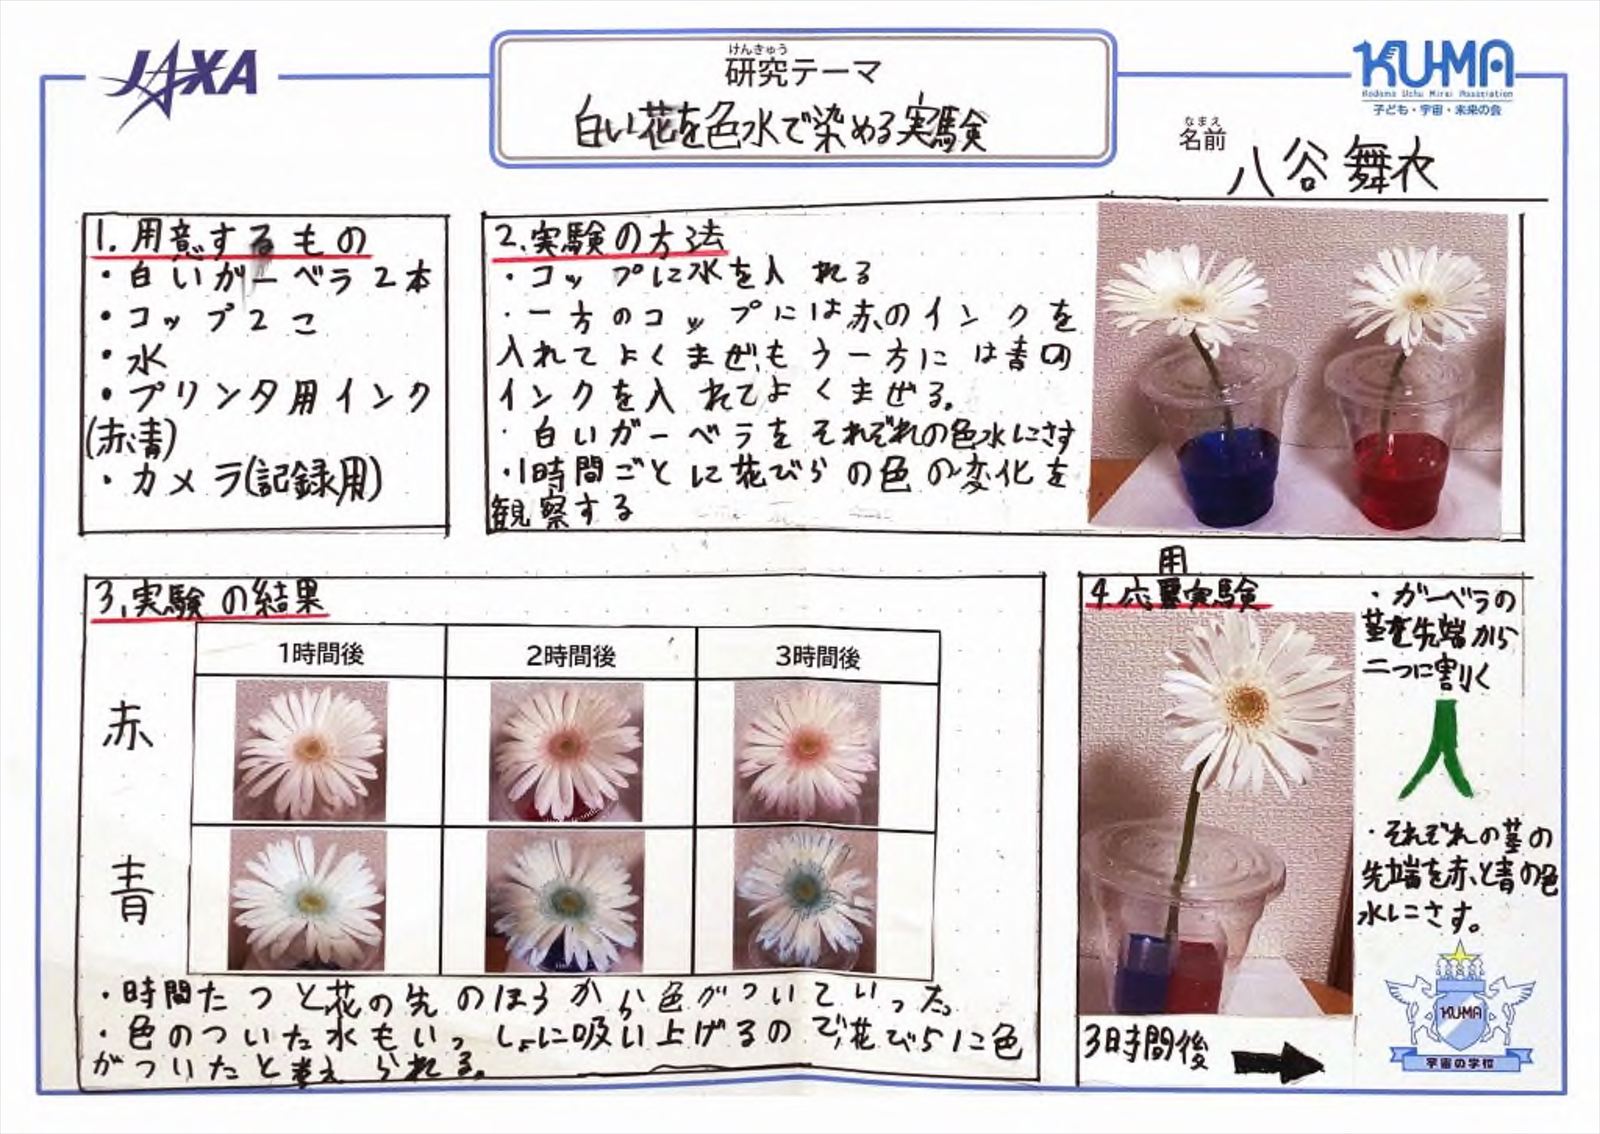 JAXA
けんきゅう
研究テーマ
白い花を色水で染める実験
KU-MA
Kodomo Uchu Mirai Association
子ども・宇宙・未来の会
なまえ
名前
八谷 舞衣
1. 用意するもの
・白いガーベラ2本
・コップ2こ
・水
・プリンタ用インク
(赤、青)
・カメラ(記録用)
2. 実験の方法
・コップに水を入れる
・一方のコップには赤のインクを
入れてよくまぜ、もう一方には青の
インクを入れてよくまぜる。
・白いガーベラをそれぞれの色水にさす
・1時間ごとに花びらの色の変化を
観察する
3. 実験の結果
1時間後 2時間後 3時間後
赤
青
・時間たつと花の先のほうから色がついていった。
・色のついた水もいっしょに吸い上げるので、花びらに色
がついたと考えられる。
用
4. 応実験
・ガーベラの
茎を先端から
二つに割く
・それぞれの茎の
先端を赤と青の色
水にさす。
3時間後
KUMA
宇宙の学校